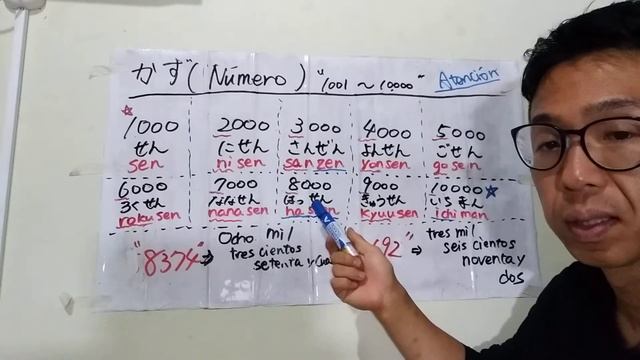 かず (Número) "1001 ~ 10,000" Atención
☆
1000 2000 3000 4000 5000
せん にせん さんぜん よんせん ごせん
sen nisen sanzen yonsen gosen
6000 7000 8000 9000 10000☆
ろくせん ななせん はっせん きゅうせん いちまん
rokusen nanasen kyuusen ichiman
"8374" ⇒ Ocho mil
tres cientos
setenta y
692" ⇒ tres mil
seis cientos
noventa y
dos